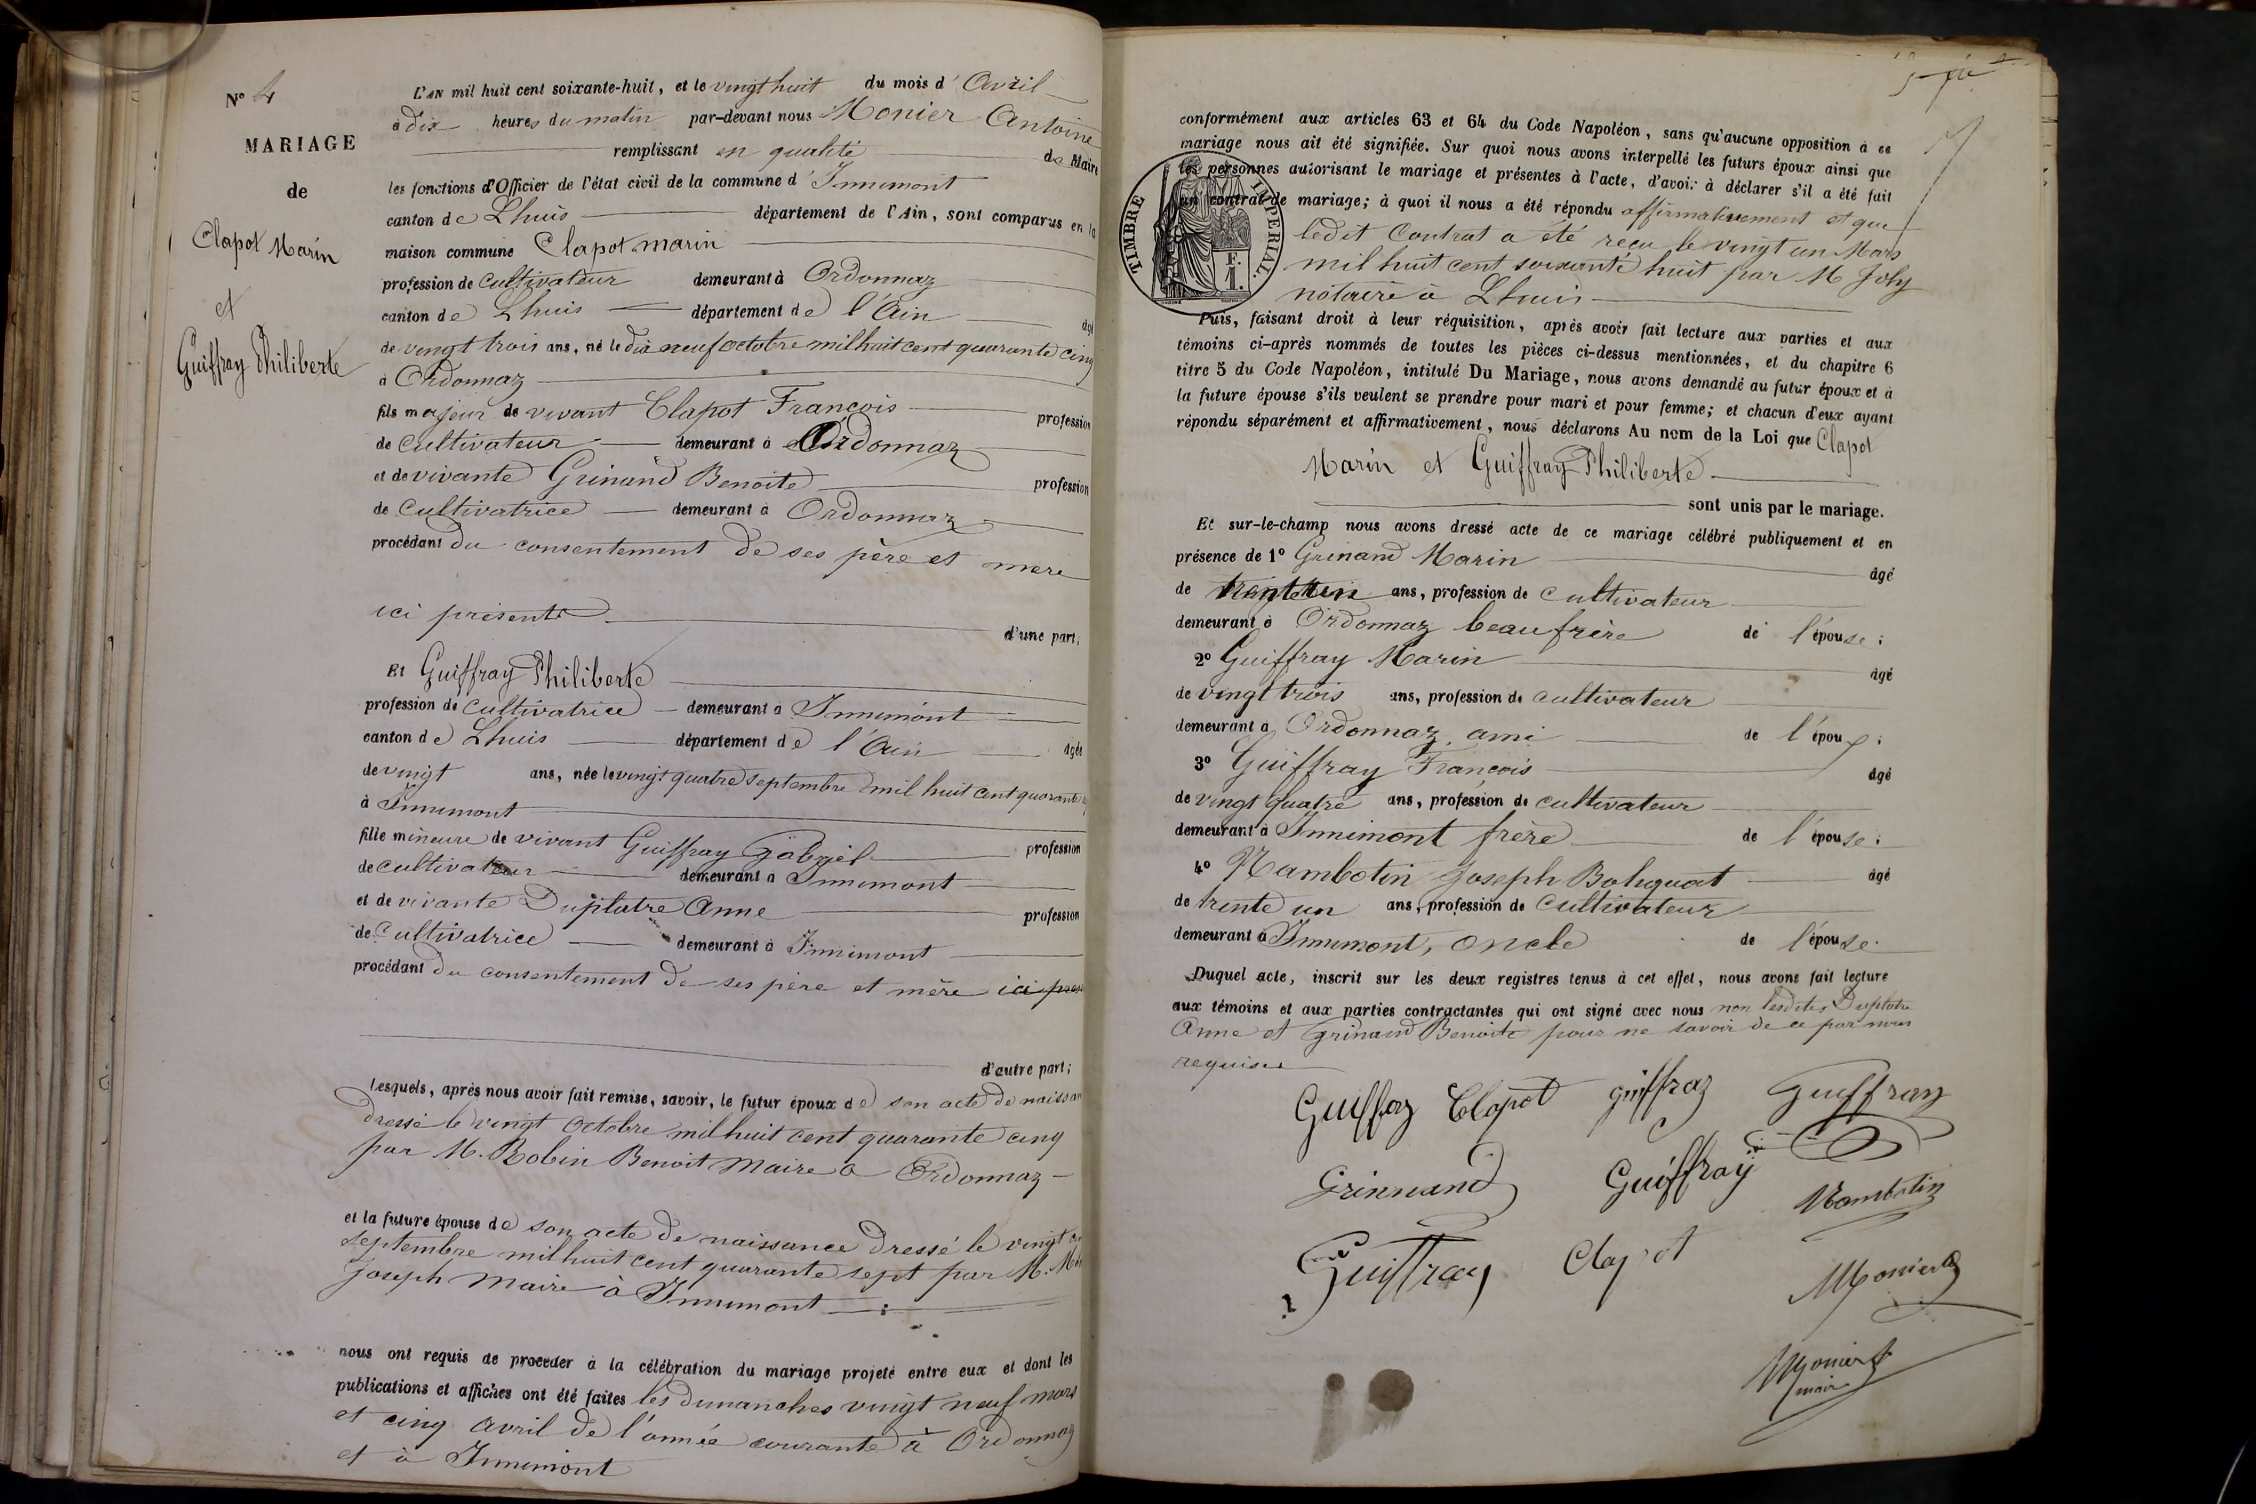 N° 4
MARIAGE
de
Clapot Marin
et
Guiffray Philiberte
L'AN mil huit cent soixante-huit, et le vingt huit du mois d'Avril
à dix heures du matin par-devant nous Monier Antoine
remplissant en qualité de Maire
les fonctions d'Officier de l'état civil de la commune d'Innimont
canton de Lhuis département de l'Ain, sont comparus en la
maison commune Clapot marin
profession de cultivateur demeurant à Ordonnaz
canton de Lhuis département de l'Ain âgé
de vingt trois ans, né le dix neuf octobre mil huit cent quarante cinq
à Ordonnaz
fils majeur de vivant Clapot François profession
de cultivateur demeurant à Ordonnaz
et de vivante Grinand Benoite profession
de cultivatrice demeurant à Ordonnaz
procédant du consentement de ses père et mère
ici présents
d'une part;
Et Guiffray Philiberte
profession de cultivatrice demeurant à Innimont
canton de Lhuis département de l'Ain âgée
de vingt ans, née le vingt quatre septembre mil huit cent quarante
à Innimont
fille mineure de vivant Guiffray Gabriel profession
de cultivateur demeurant à Innimont
et de vivante Duplatre Anne profession
de cultivatrice demeurant à Innimont
procédant du consentement de ses père et mère ici
d'autre part;
Lesquels, après nous avoir fait remise, savoir, le futur époux de son acte de naissan
dressé le vingt octobre mil huit cent quarante cinq
par M. Robin Benoit Maire a Ordonnaz
et la future épouse de son acte de naissance dressé le vingt
septembre mil huit cent quarante sept par M.
Joseph Maire à Innimont
nous ont requis de procéder à la célébration du mariage projeté entre eux et dont les
publications et affiches ont été faites les dimanches vingt neuf mars
et cinq avril de l'année courante à Ordonnaz
et à Innimont
conformément aux articles 63 et 64 du Code Napoléon, sans qu'aucune opposition à ce
mariage nous ait été signifiée. Sur quoi nous avons interpellé les futurs époux ainsi que
les personnes autorisant le mariage et présentes à l'acte, d'avoir à déclarer s'il a été fait
un contrat de mariage; à quoi il nous a été répondu affirmativement et que
ledit Contrat a été reçu le vingt un Mars
mil huit cent soixante huit par M Joly
notaire à Lhuis
TIMBRE IMPERIAL.
F.
1.
Puis, faisant droit à leur réquisition, après avoir fait lecture aux parties et aux
témoins ci-après nommés de toutes les pièces ci-dessus mentionnées, et du chapitre 6
titre 5 du Code Napoléon, intitulé Du Mariage, nous avons demandé au futur époux et à
la future épouse s'ils veulent se prendre pour mari et pour femme; et chacun d'eux ayant
répondu séparément et affirmativement, nous déclarons Au nom de la Loi que Clapot
Marin et Guiffray Philiberte
sont unis par le mariage.
Et sur-le-champ nous avons dressé acte de ce mariage célébré publiquement et en
présence de 1° Grinand Marin âgé
de ans, profession de cultivateur
demeurant à Ordonnaz beau frère de l'épouse;
2° Guiffray Marin âgé
de vingt trois ans, profession de cultivateur
demeurant à Ordonnaz, ami de l'époux;
3° Guiffray François âgé
de vingt quatre ans, profession de cultivateur
demeurant à Innimont frère de l'épouse;
4° Mambotin Joseph âgé
de trente un ans, profession de cultivateur
demeurant à Innimont, oncle de l'épouse.
Duquel acte, inscrit sur les deux registres tenus à cet effet, nous avons fait lecture
aux témoins et aux parties contractantes qui ont signé avec nous non lesdites Duplatre
Anne et Grinand Benoite pour ne savoir de ce par nous
requises
Guiffray Clapot Guiffray Guiffray
Grinnand Guiffray Mambotin
Guiffray Clapot Monier
Monier
maire